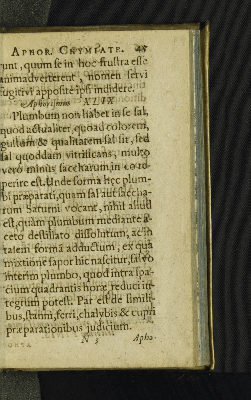 APHOR. CHYMIATE. 45
runt, quum se in hoc frustra esse
animadverterent, nomen servi
fugitivi appositè ipsi indidere.
Aphorismus XLIX
Plumbum non habet in se sal,
quod actualiter, quoad colorem,
gustum & qualitatem sal sit, sed
sal quoddam vitrificans, multo
verò minus saccharum in eo re-
perire est. Unde forma hæc plum-
bi præparati, quam sal aut saccha-
rum Saturni vocant, nihil aliud
est, quam plumbum mediante a-
ceto destillato dissolutum, ac in
talem formã adductum, ex quâ
mixtione sapor hic nascitur, salvo
interim plumbo, quod intra spa-
cium quadrantis horæ, reduci in-
tegrum potest. Par est de simili-
bus, stanni, ferri, chalybis & cupri
præparationibus judicium.
N 3 Apho-